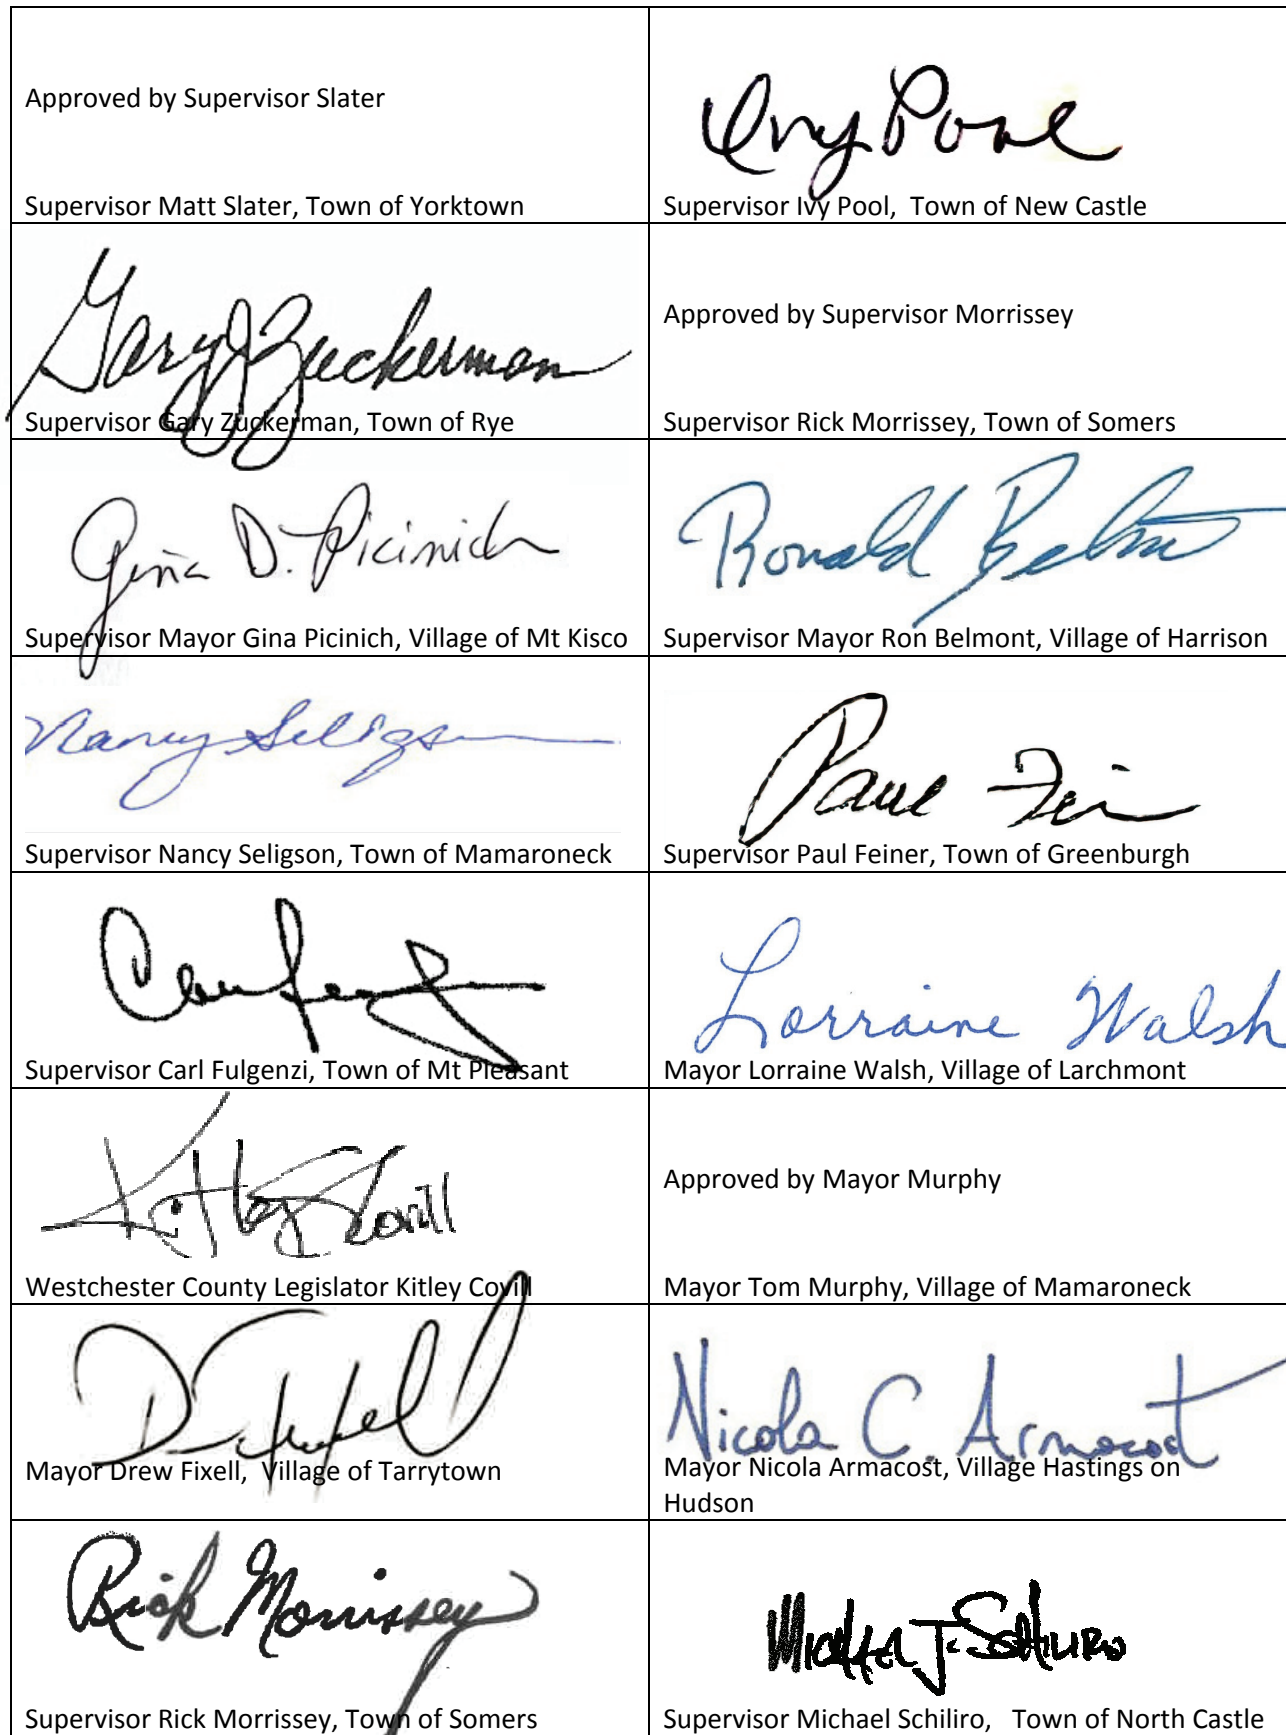 Approved by Supervisor Slater
Supervisor Matt Slater, Town of Yorktown
Ivy Pool
Supervisor Ivy Pool, Town of New Castle
Gary J Zuckerman
Supervisor Gary Zuckerman, Town of Rye
Approved by Supervisor Morrissey
Supervisor Rick Morrissey, Town of Somers
Gina D. Picinich
Supervisor Mayor Gina Picinich, Village of Mt Kisco
Ronald Belmont
Supervisor Mayor Ron Belmont, Village of Harrison
Nancy Seligson
Supervisor Nancy Seligson, Town of Mamaroneck
Paul Feiner
Supervisor Paul Feiner, Town of Greenburgh
Supervisor Carl Fulgenzi, Town of Mt Pleasant
Lorraine Walsh
Mayor Lorraine Walsh, Village of Larchmont
Kitley Covill
Westchester County Legislator Kitley Covill
Approved by Mayor Murphy
Mayor Tom Murphy, Village of Mamaroneck
Mayor Drew Fixell, Village of Tarrytown
Nicola C. Armacost
Mayor Nicola Armacost, Village Hastings on
Hudson
Rick Morrissey
Supervisor Rick Morrissey, Town of Somers
Michael J. Schiliro
Supervisor Michael Schiliro, Town of North Castle